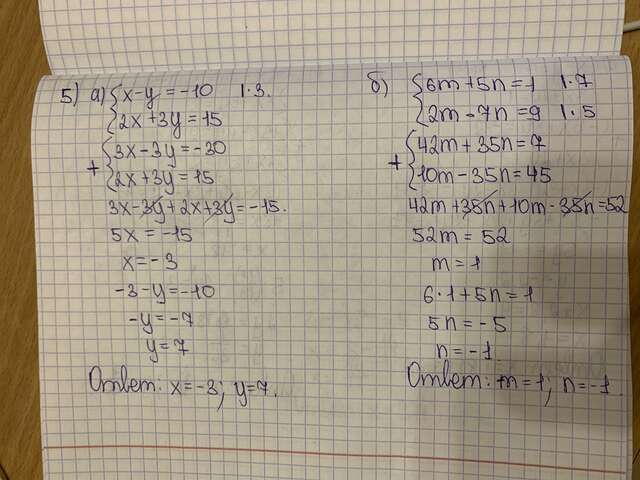 5) а) x-y=-10 | ·3.
2x+3y=15
+ 3x-3y=-30
2x+3y=15
3x-3y+2x+3y=-15.
5x=-15
x=-3
-3-y=-10
-y=-7
y=7
Ответ: x=-3; y=7.
б) 6m+5n=1 | ·7
2m-7n=9 | ·5
+ 42m+35n=7
10m-35n=45
42m+35n+10m-35n=52
52m=52
m=1
6·1+5n=1
5n=-5
n=-1
Ответ: m=1; n=-1.